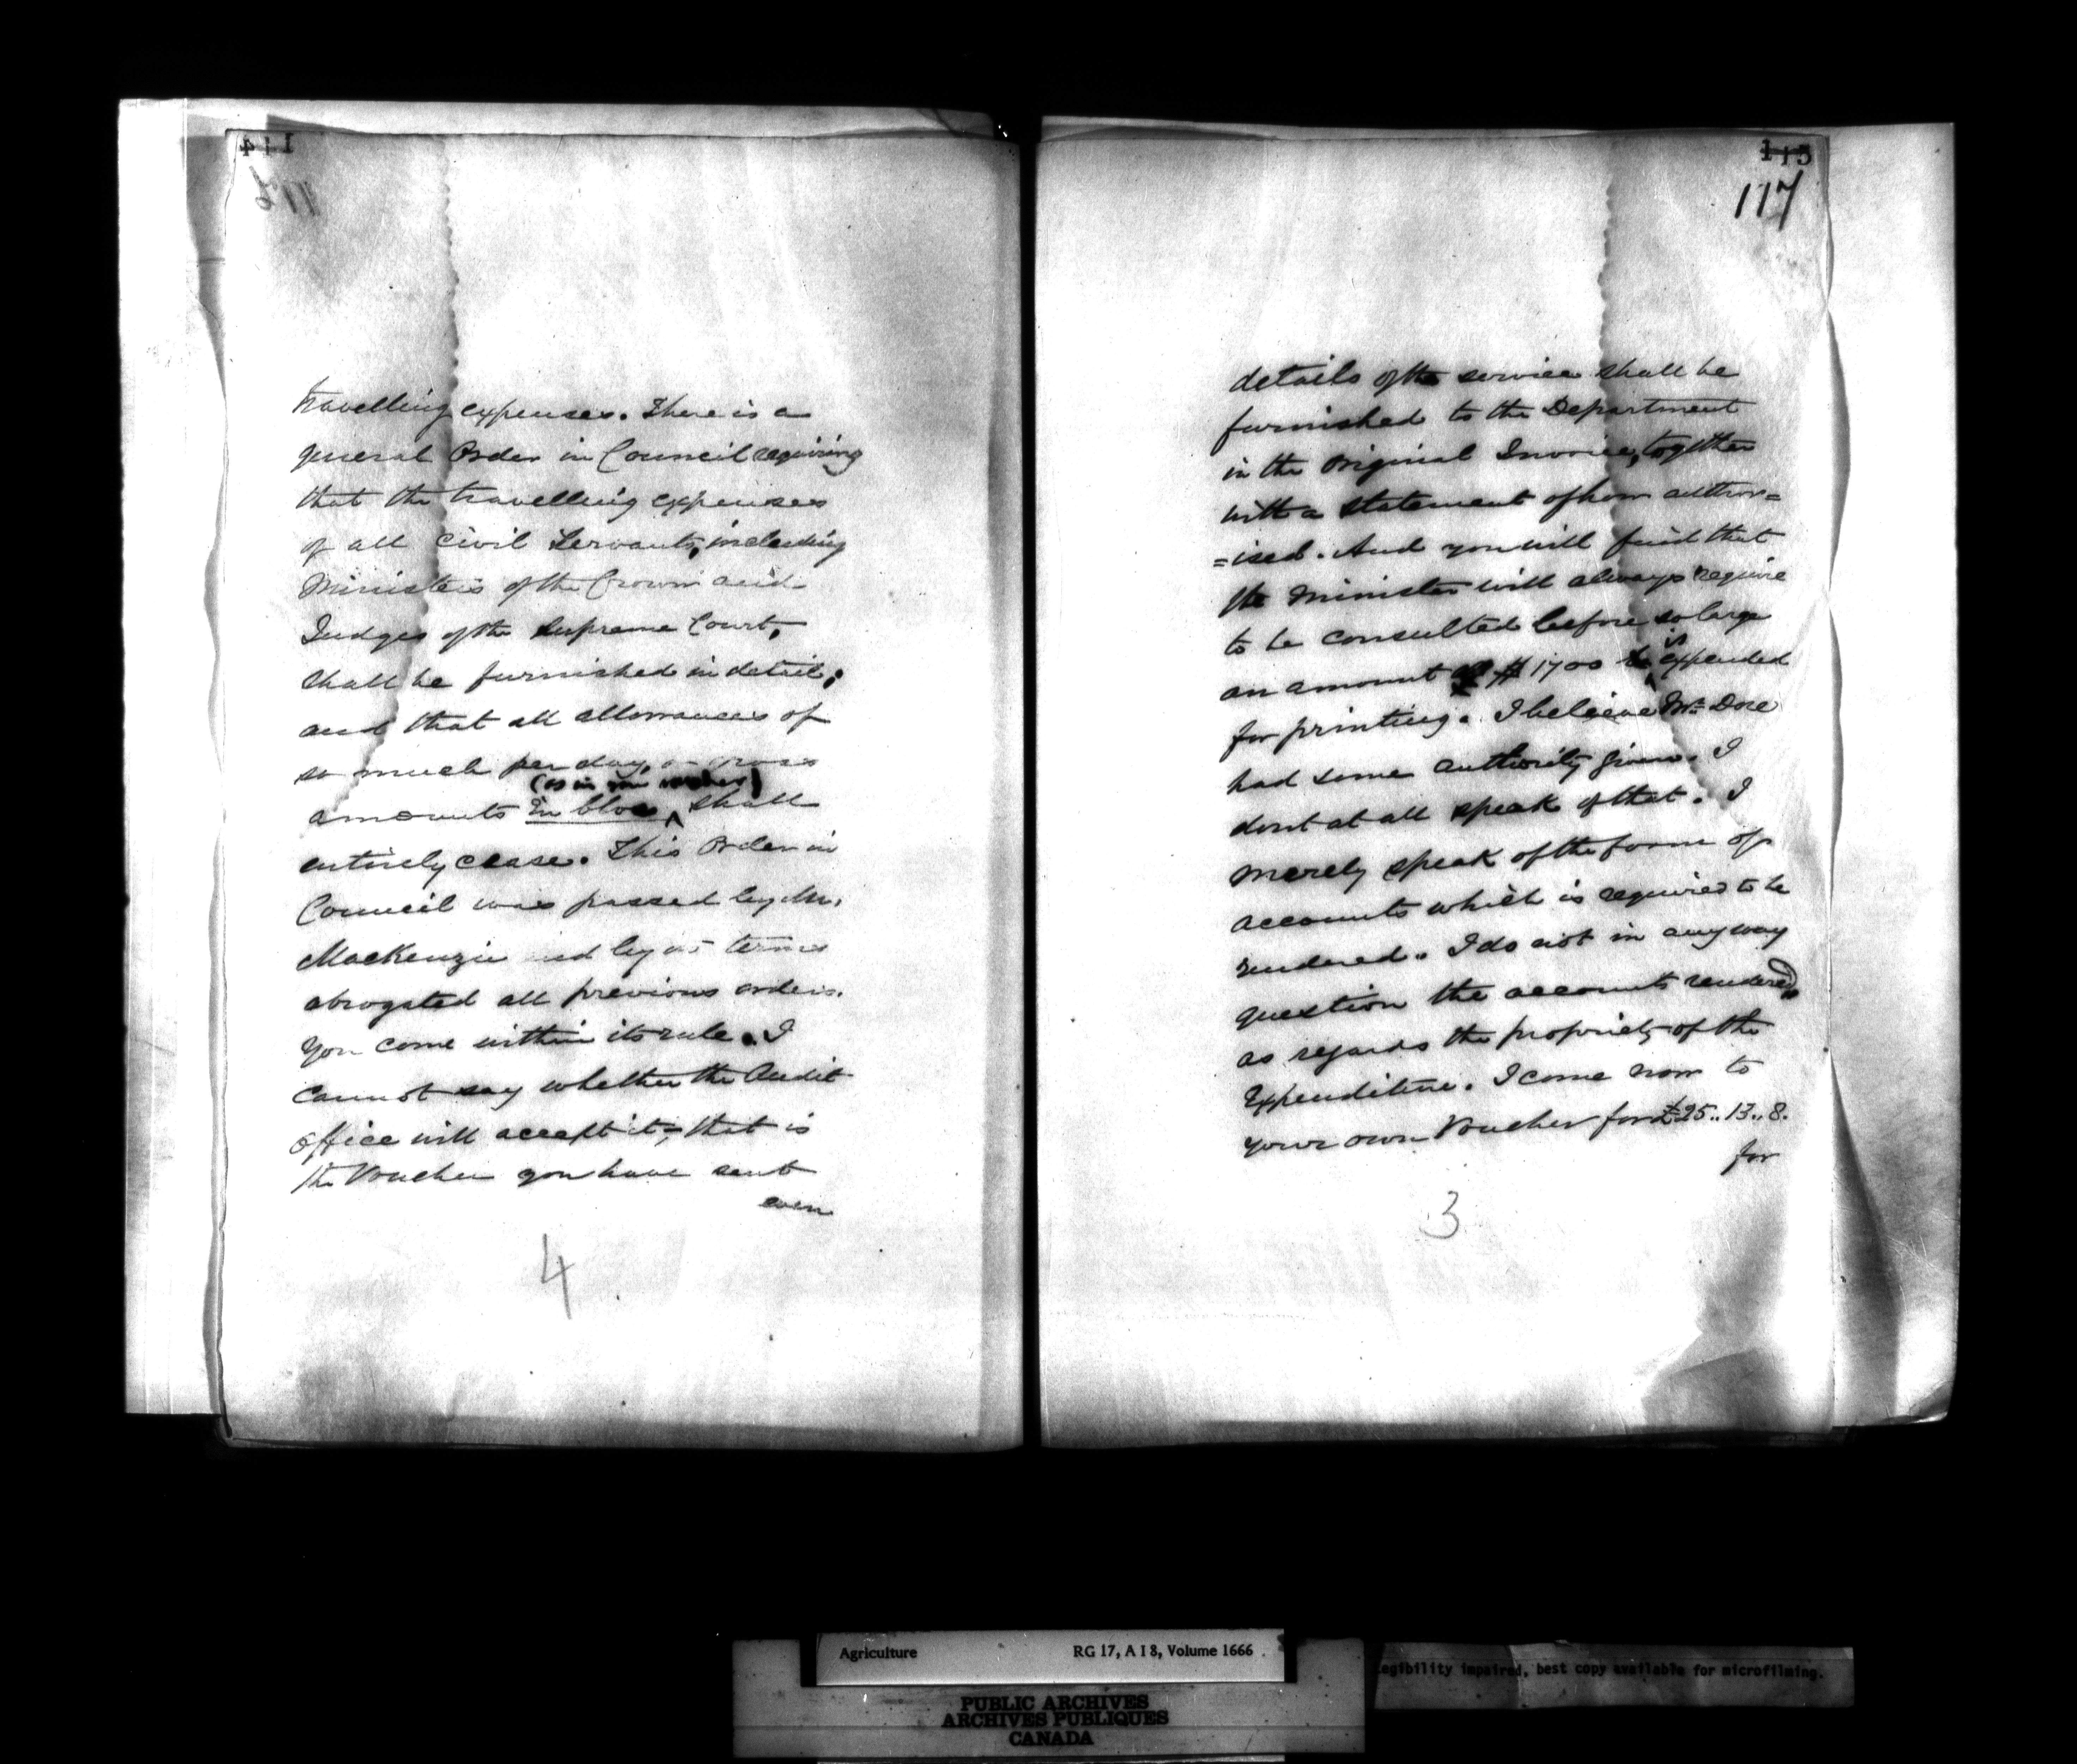 114
116
travelling expenses. There is a
general Order in Council requiring
that the travelling expenses
of all Civil Servants, including
Ministers of the Crown and
Judges of the Supreme Court,
shall be furnished in detail;
and that all allowances of
so much per day, or gross
(as in your voucher)
amounts En bloc ^ shall
entirely cease. This Order in
Council was passed by Mr.
MacKenzie and by its terms
abrogated all previous orders.
You come within its rule. I
cannot say whether the Audit
Office will accept it, – that is
the Voucher you have sent
even
4
115
117
details of the service shall be
furnished to the Department
in the Original Invoice, together
with a statement of how author=
=ised. And you will find that
the Minister will always require
to be consulted before so large
is
an amount as $1700 ^ expended
for printing. I believe Mr. Dore
had some authority given. I
dont at all speak of that. I
merely speak of the form of
accounts which is required to be
rendered. I do not in any way
question the accounts rendered,
as regards the propriety of the
Expenditure. I come now to
your own Voucher for £25..13..8.
for
3
Agriculture RG 17, A I 8, Volume 1666
Legibility impaired, best copy available for microfilming.
PUBLIC ARCHIVES
ARCHIVES PUBLIQUES
CANADA